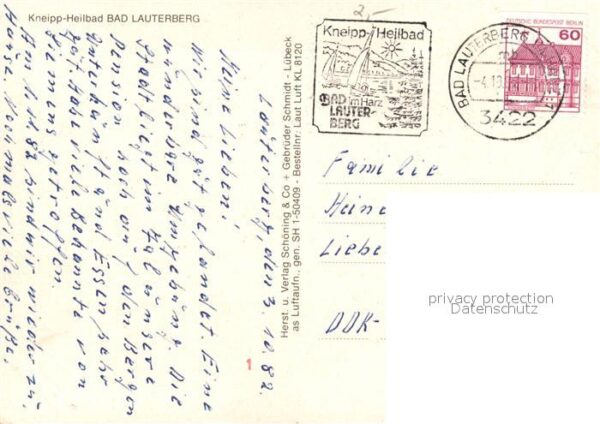 Kneipp-Heilbad BAD LAUTERBERG
2,-
Kneipp-Heilbad
BAD im Harz
LAUTER-
BERG
BAD LAUTERBERG
-4.10
3422
DEUTSCHE BUNDESPOST BERLIN
60
Lauterberg, den 3.10.82.
Ihr Lieben!
Wir sind gut gelandet. Eine
wunderbare Umgebung. Die
Stadt liegt im Tal unsere
Pension hoch auf den Bergen
Unterkunft und Essen sehr
gut. Hab viele Bekannte von
Siemens getroffen.
Am 11.10.82 sind wir wieder zu
Hause. Nochmals viele Grüße.
Herst. u. Verlag Schöning & Co + Gebrüder Schmidt - Lübeck
as Luftaufn., gen. SH 1-50409 - Bestellnr: Laut Luft KL 8120
1
Familie
Heine
Liebe
DDR-
privacy protection
Datenschutz